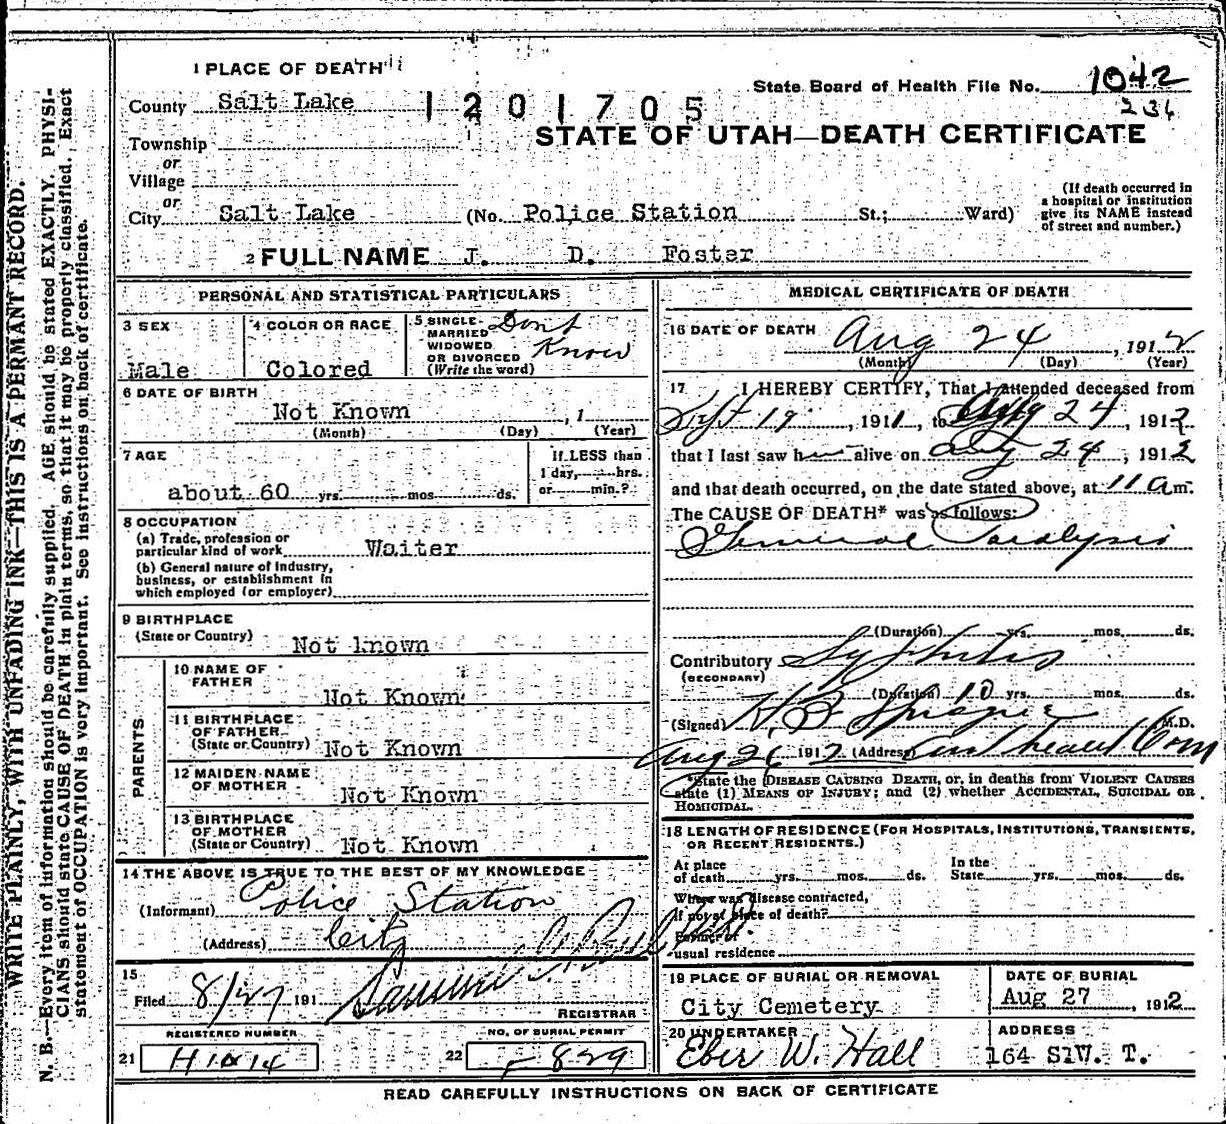 1 PLACE OF DEATH
County Salt Lake
1201705
State Board of Health File No. 1042
236
STATE OF UTAH—DEATH CERTIFICATE
Township
or
Village
or
City Salt Lake (No. Police Station St.; Ward)
(If death occurred in
a hospital or institution
give its NAME instead
of street and number.)
2 FULL NAME J. D. Foster
PERSONAL AND STATISTICAL PARTICULARS
3 SEX
Male
4 COLOR OR RACE
Colored
5 SINGLE
MARRIED
WIDOWED
OR DIVORCED
(Write the word)
Dont
Know
6 DATE OF BIRTH
Not Known , 1
(Month) (Day) (Year)
7 AGE
about 60 yrs. mos. ds.
If LESS than
1 day, hrs.
or min.?
8 OCCUPATION
(a) Trade, profession or
particular kind of work Waiter
(b) General nature of industry,
business, or establishment in
which employed (or employer)
9 BIRTHPLACE
(State or Country) Not known
PARENTS
10 NAME OF
FATHER
Not Known
11 BIRTHPLACE
OF FATHER
(State or Country) Not Known
12 MAIDEN NAME
OF MOTHER
Not Known
13 BIRTHPLACE
OF MOTHER
(State or Country) Not Known
14 THE ABOVE IS TRUE TO THE BEST OF MY KNOWLEDGE
(Informant) Police Station
(Address) City
15
Filed 8/27 191
REGISTRAR
REGISTERED NUMBER
21 H1014
NO. OF BURIAL PERMIT
22 829
MEDICAL CERTIFICATE OF DEATH
16 DATE OF DEATH
Aug 24 , 1912
(Month) (Day) (Year)
17 I HEREBY CERTIFY, That I attended deceased from
Sept 19 , 1911 , to Aug 24 , 1912
that I last saw him alive on Aug 24 , 1912
and that death occurred, on the date stated above, at 11 a m.
The CAUSE OF DEATH* was as follows:
General Paralysis
(Duration) yrs. mos. ds.
Contributory Syphilis
(SECONDARY)
(Duration) 10 yrs. mos. ds.
(Signed) H. B. Sprague M.D.
Aug 26 1912 (Address)
*State the DISEASE CAUSING DEATH, or, in deaths from VIOLENT CAUSES
state (1) MEANS OF INJURY; and (2) whether ACCIDENTAL, SUICIDAL OR
HOMICIDAL.
18 LENGTH OF RESIDENCE (FOR HOSPITALS, INSTITUTIONS, TRANSIENTS,
OR RECENT RESIDENTS.)
At place
of death yrs. mos. ds.
In the
State yrs. mos. ds.
Where was disease contracted,
if not at place of death?
Former or
usual residence
19 PLACE OF BURIAL OR REMOVAL
City Cemetery
DATE OF BURIAL
Aug 27 , 1912
20 UNDERTAKER
Eber W. Hall
ADDRESS
164 S.W. T.
READ CAREFULLY INSTRUCTIONS ON BACK OF CERTIFICATE
WRITE PLAINLY, WITH UNFADING INK—THIS IS A PERMANT RECORD.
N. B.—Every item of information should be carefully supplied. AGE should be stated EXACTLY. PHYSI-
CIANS should state CAUSE OF DEATH in plain terms, so that it may be properly classified. Exact
statement of OCCUPATION is very important. See instructions on back of certificate.